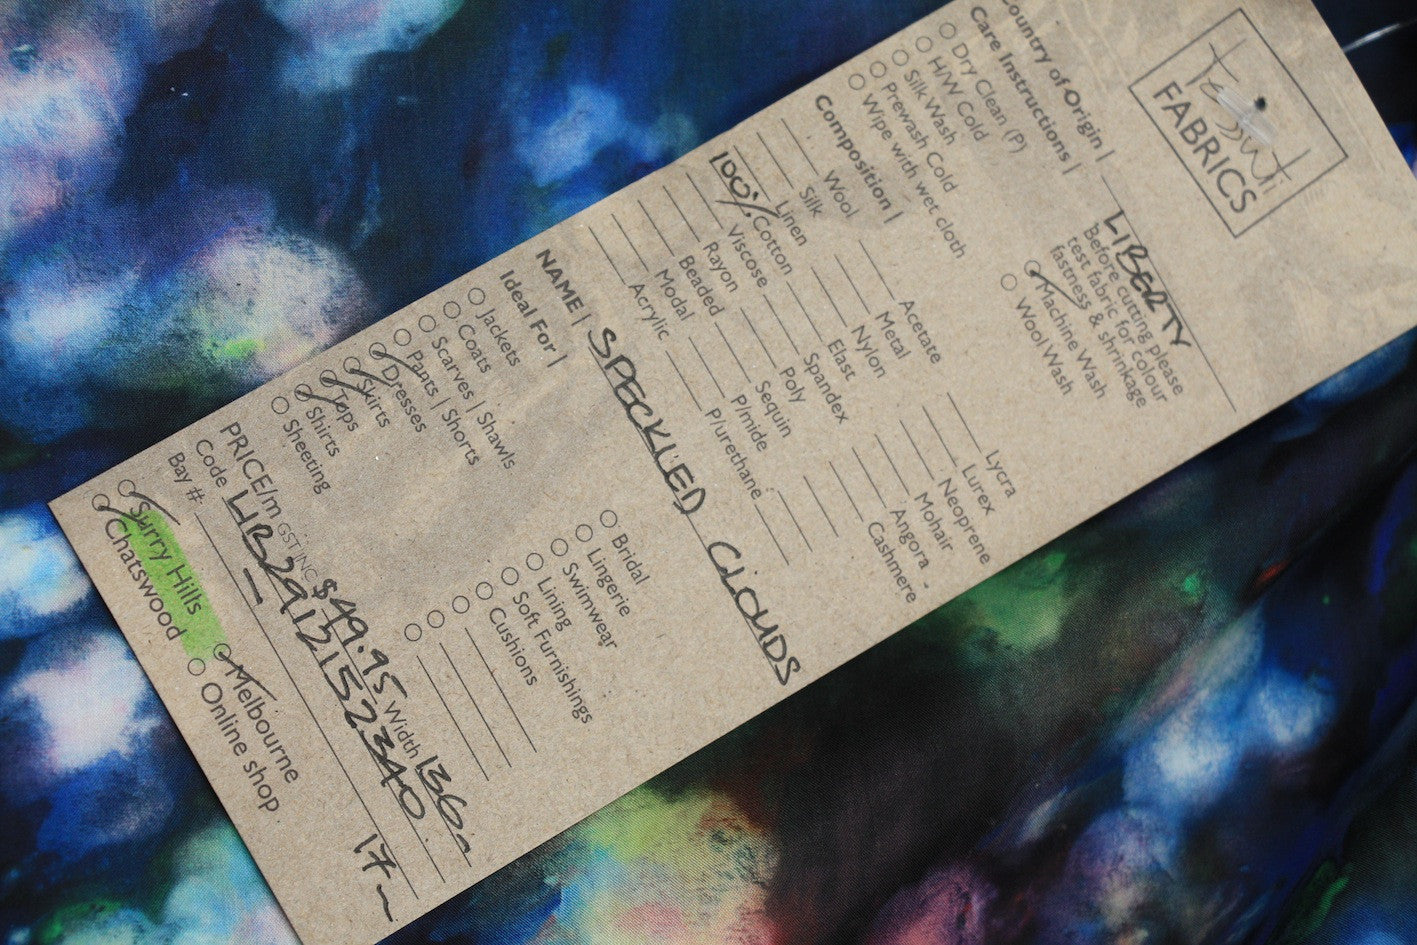 Tessuti
FABRICS
Country of Origin | LIBERTY
Care Instructions |
Before cutting please
test fabric for colour
fastness & shrinkage
Dry Clean (P)
H/W Cold
Silk Wash
Prewash Cold
Wipe with wet cloth
Machine Wash
Wool Wash
Composition |
Wool
Silk
Linen
100% Cotton
Viscose
Rayon
Beaded
Modal
Acrylic
Acetate
Metal
Nylon
Elast
Spandex
Poly
Sequin
P/mide
P/urethane
Lycra
Lurex
Neoprene
Mohair
Angora
Cashmere
NAME | SPECKLED CLOUDS
Ideal For |
Jackets
Coats
Scarves | Shawls
Pants | Shorts
Dresses
Skirts
Tops
Shirts
Sheeting
Bridal
Lingerie
Swimwear
Lining
Soft Furnishings
Cushions
PRICE/m GST INC $49.95 Width 136
Code LIB2912152340
Bay # – 17
Surry Hills
Chatswood
Melbourne
Online shop